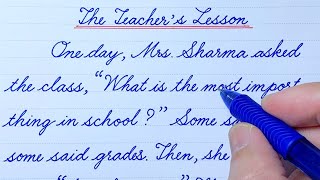 The Teacher's Lesson
One day, Mrs. Sharma asked
the class, "What is the most import
thing in school?" Some s
some said grades. Then, she